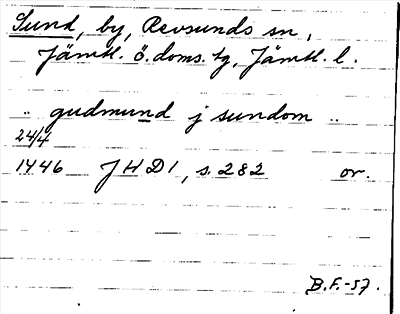 Sund, by, Revsunds sn,
Jämtl. ö. doms. tg, Jämtl. l.
.. gudmund j sundom ..
24/4
1446 JHD1, s. 282 or.
B.F.-57.